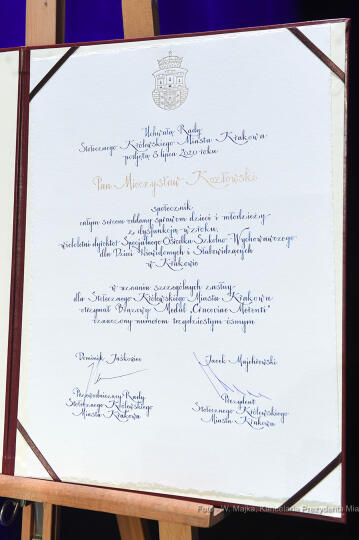 Uchwałą Rady
Stołecznego Królewskiego Miasta Krakowa
podjętą 8 lipca 2020 roku
Pan Mieczysław Kozłowski
społecznik
całym sercem oddany sprawom dzieci i młodzieży
z dysfunkcją wzroku,
wieloletni dyrektor Specjalnego Ośrodka Szkolno-Wychowawczego
dla Dzieci Niewidomych i Słabowidzących
w Krakowie
w uznaniu szczególnych zasług
dla Stołecznego Królewskiego Miasta Krakowa
otrzymał Brązowy Medal „Cracoviae Merenti”
oznaczony numerem trzydziestym ósmym
Dominik Jaśkowiec
Przewodniczący Rady
Stołecznego Królewskiego
Miasta Krakowa
Jacek Majchrowski
Prezydent
Stołecznego Królewskiego
Miasta Krakowa
W. Majka, Kancelaria Prezydenta Mia